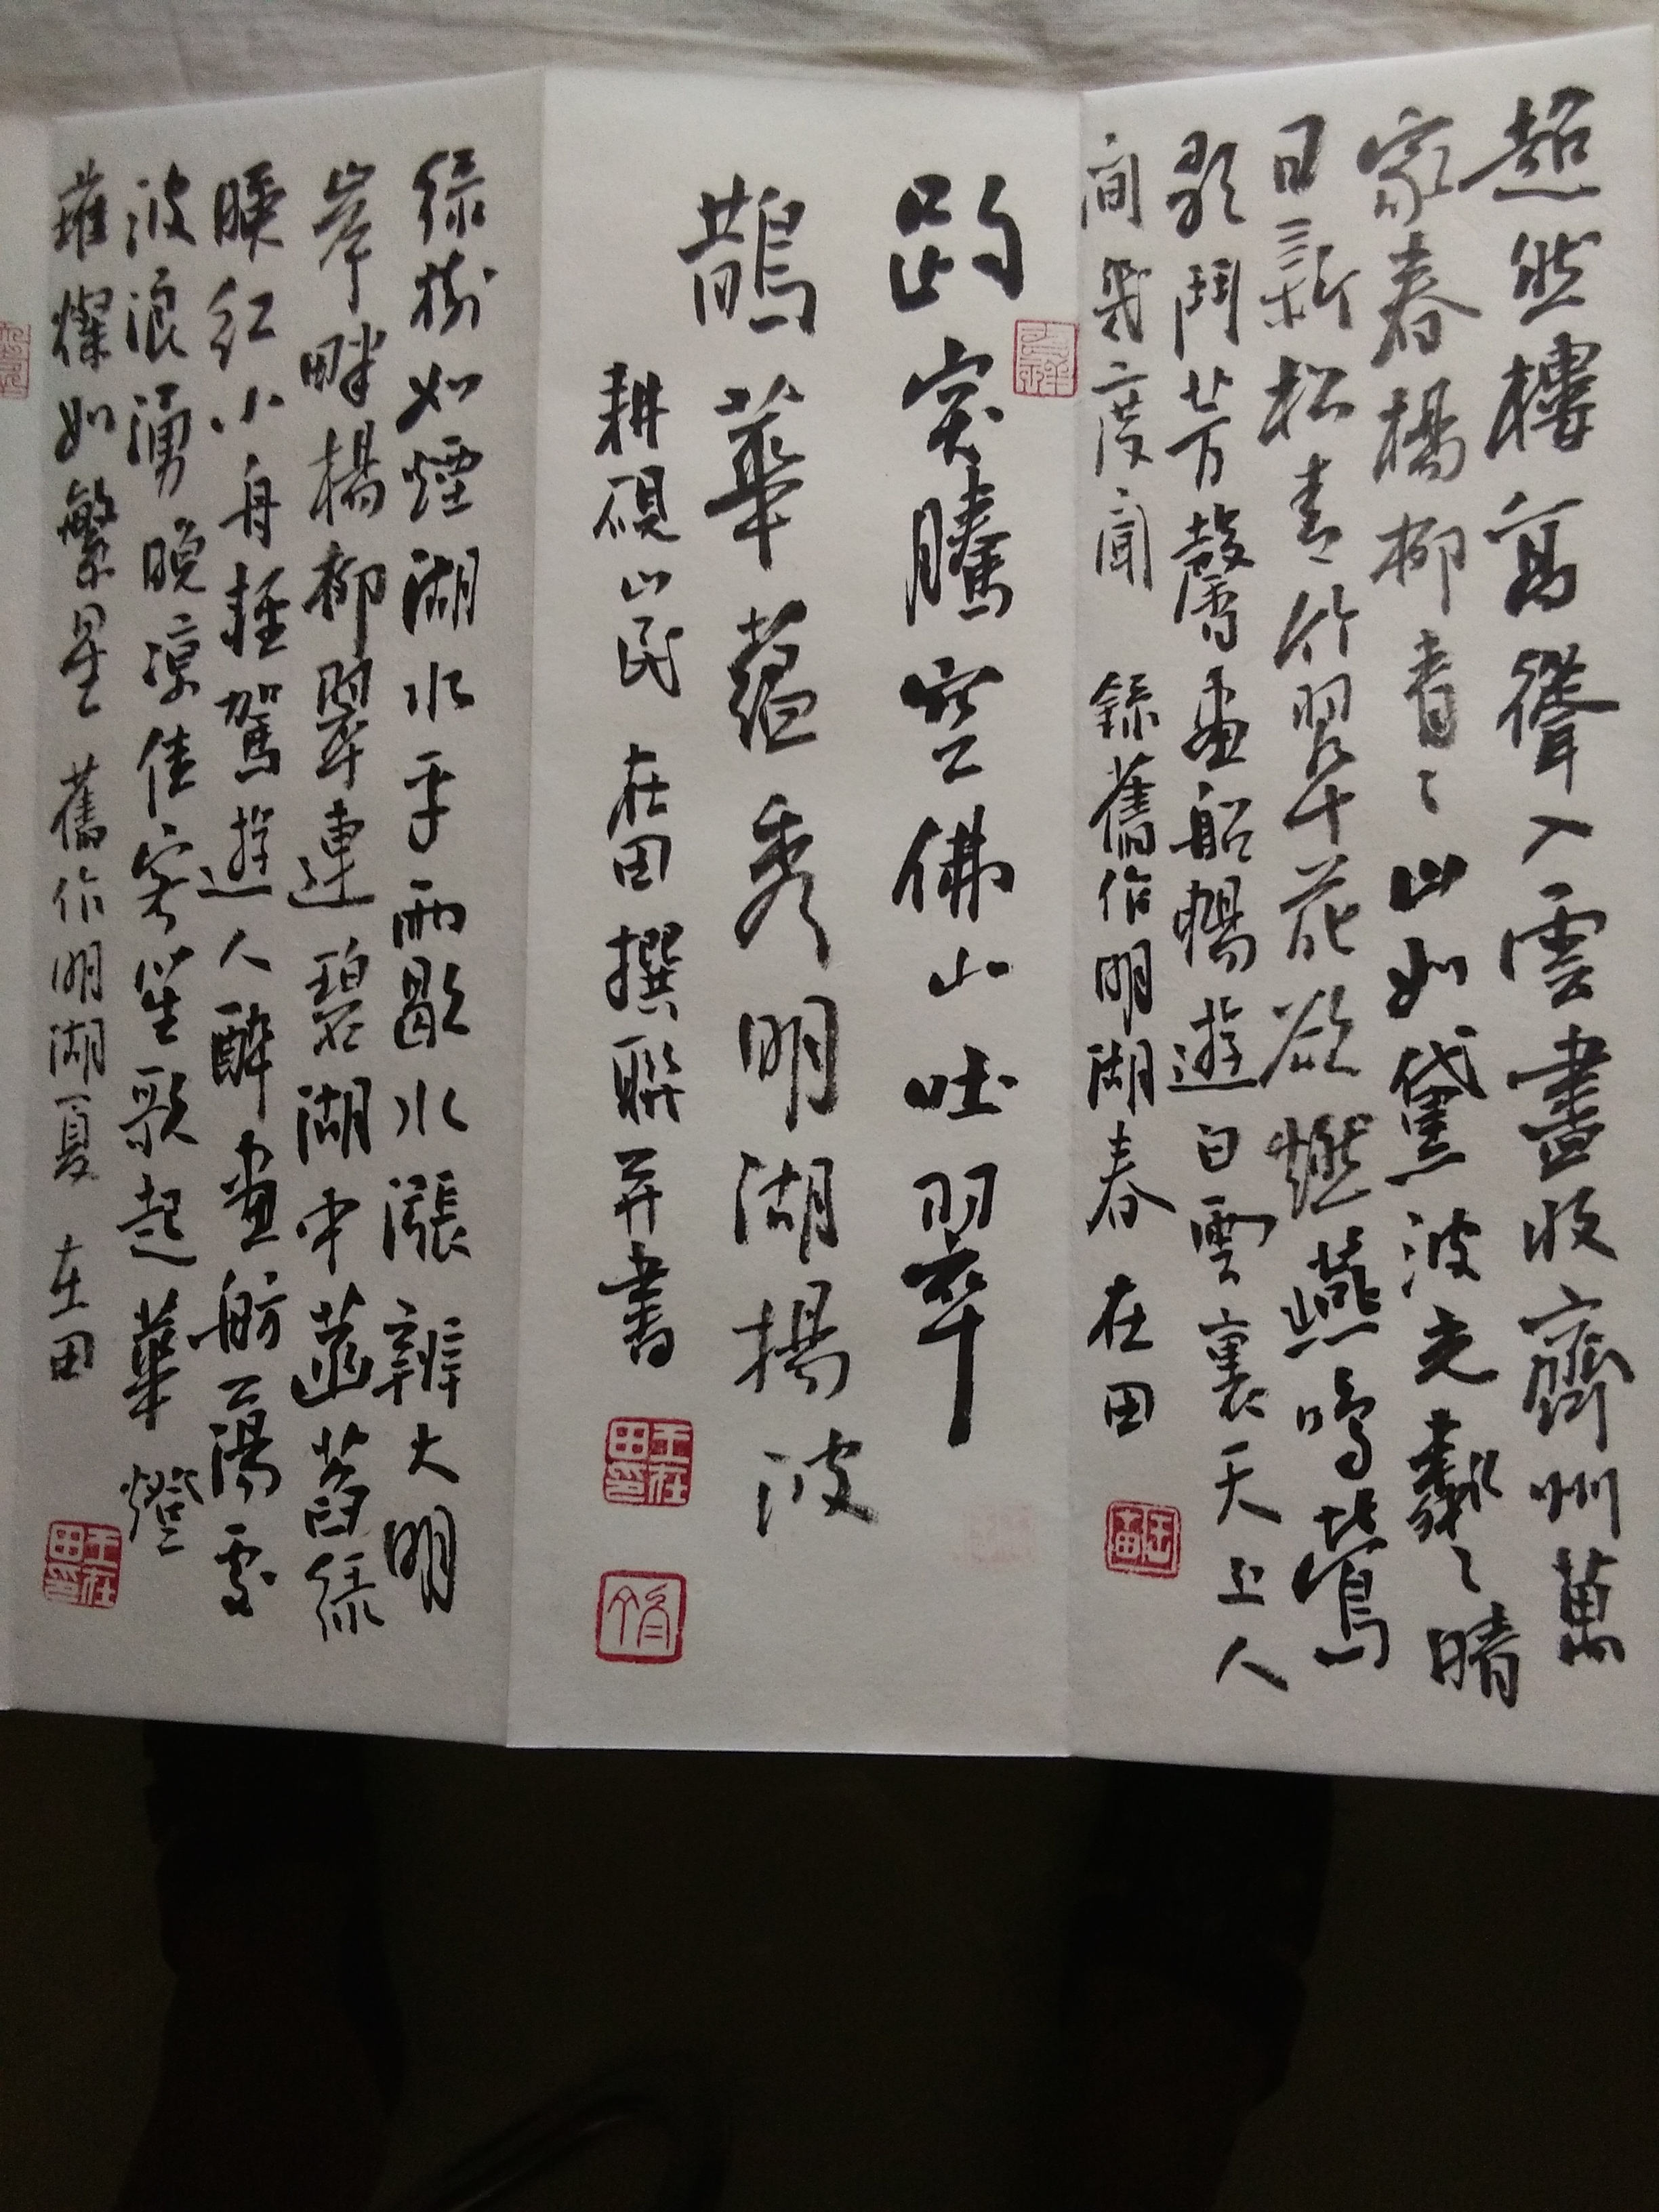 超然樓高聳入雲畫收齊州萬
家春楊柳青々山如黛波光粼々晴
日新松青竹翠花欲燃燕鳴鶯
歌鬥芳馨畫船暢遊白雲裏天上人
間幾度聞 錄舊作明湖春 在田
趵突騰空佛山吐翠
鵲華蘊秀明湖揚波
耕硯山民 在田撰聯并書
王在田印
綠樹如煙湖水平雨歇水漲辨大明
岸畔楊柳翠連碧湖中菡萏綠
映紅小舟輕駕遊人醉畫舫蕩處
波浪湧晚涼佳客笙歌起華燈
璀燦如繁星 舊作明湖夏 在田
王在田印